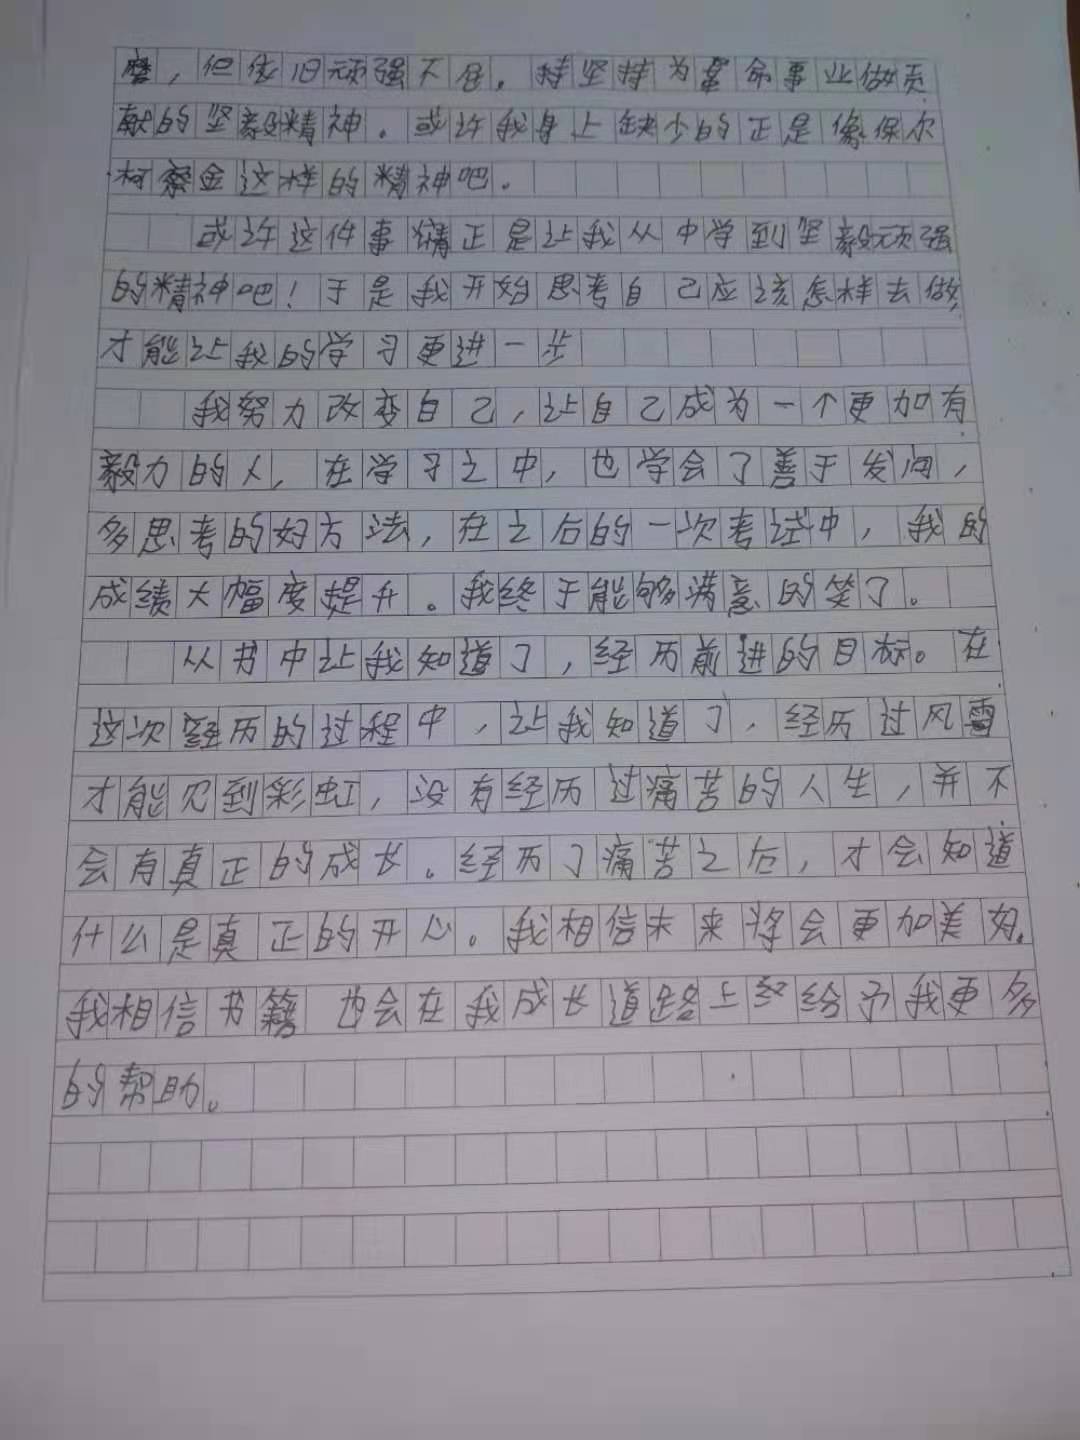 磨，但依旧顽强不屈，持坚持为革命事业做贡
献的坚毅精神。或许我身上缺少的正是像保尔
柯察金这样的精神吧。
或许这件事情正是让我从中学到坚毅顽强
的精神吧！于是我开始思考自己应该怎样去做
才能让我的学习更进一步
我努力改变自己，让自己成为一个更加有
毅力的人，在学习之中，也学会了善于发问，
多思考的好方法，在之后的一次考试中，我的
成绩大幅度提升。我终于能够满意的笑了。
从书中让我知道了，经历前进的目标。在
这次经历的过程中，让我知道了，经历过风雨
才能见到彩虹，没有经历过痛苦的人生，并不
会有真正的成长。经历了痛苦之后，才会知道
什么是真正的开心。我相信未来将会更加美好。
我相信书籍也会在我成长道路上给予我更多
的帮助。